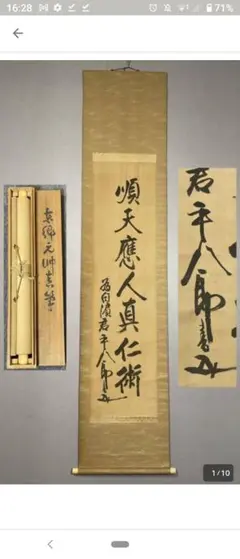 16:28
71%
順天應人真仁術
為田濱君 平八郎書
東郷元帥真筆
君平八郎書
1/10